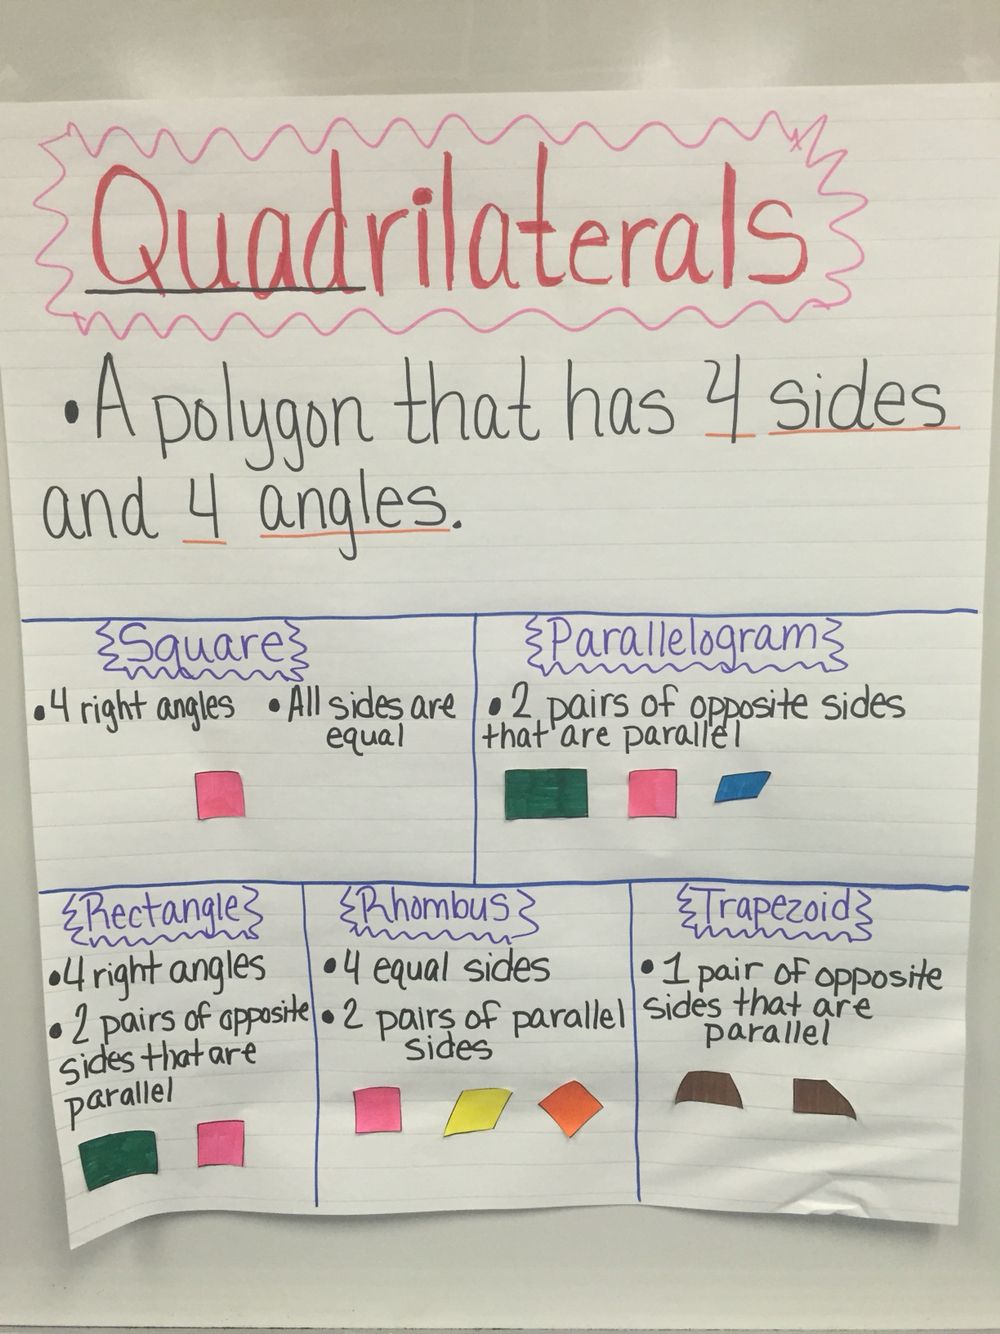 Quadrilaterals
• A polygon that has 4 sides
and 4 angles.
Square
• 4 right angles • All sides are
equal
Parallelogram
• 2 pairs of opposite sides
that are parallel
Rectangle
• 4 right angles
• 2 pairs of opposite
sides that are
parallel
Rhombus
• 4 equal sides
• 2 pairs of parallel
sides
Trapezoid
• 1 pair of opposite
sides that are
parallel